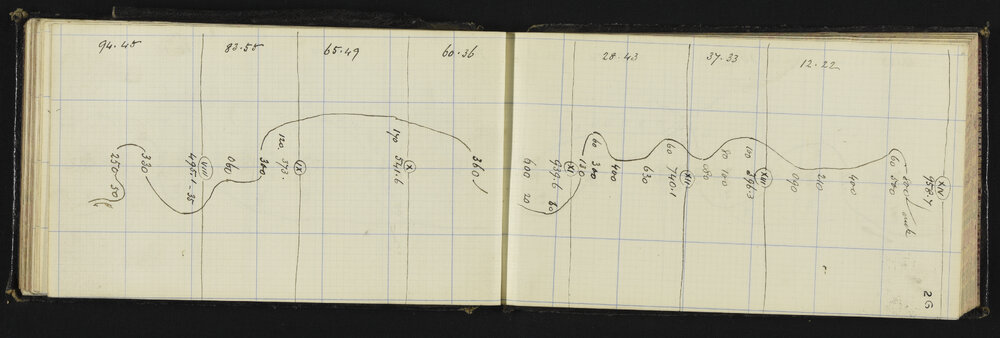 94.45
83.50
65.49
60.36
28.43
37.33
12.22
250 50
330
VIII
495.1-35
060
300
120
IX
373.
170
X
541.6
360
600 20
XI
939.6 80
130
60
300
400
630
60
XII
740.1
080
80
100
100
XIII
896.3
090
210
400
60
500
XIV
958.7
26